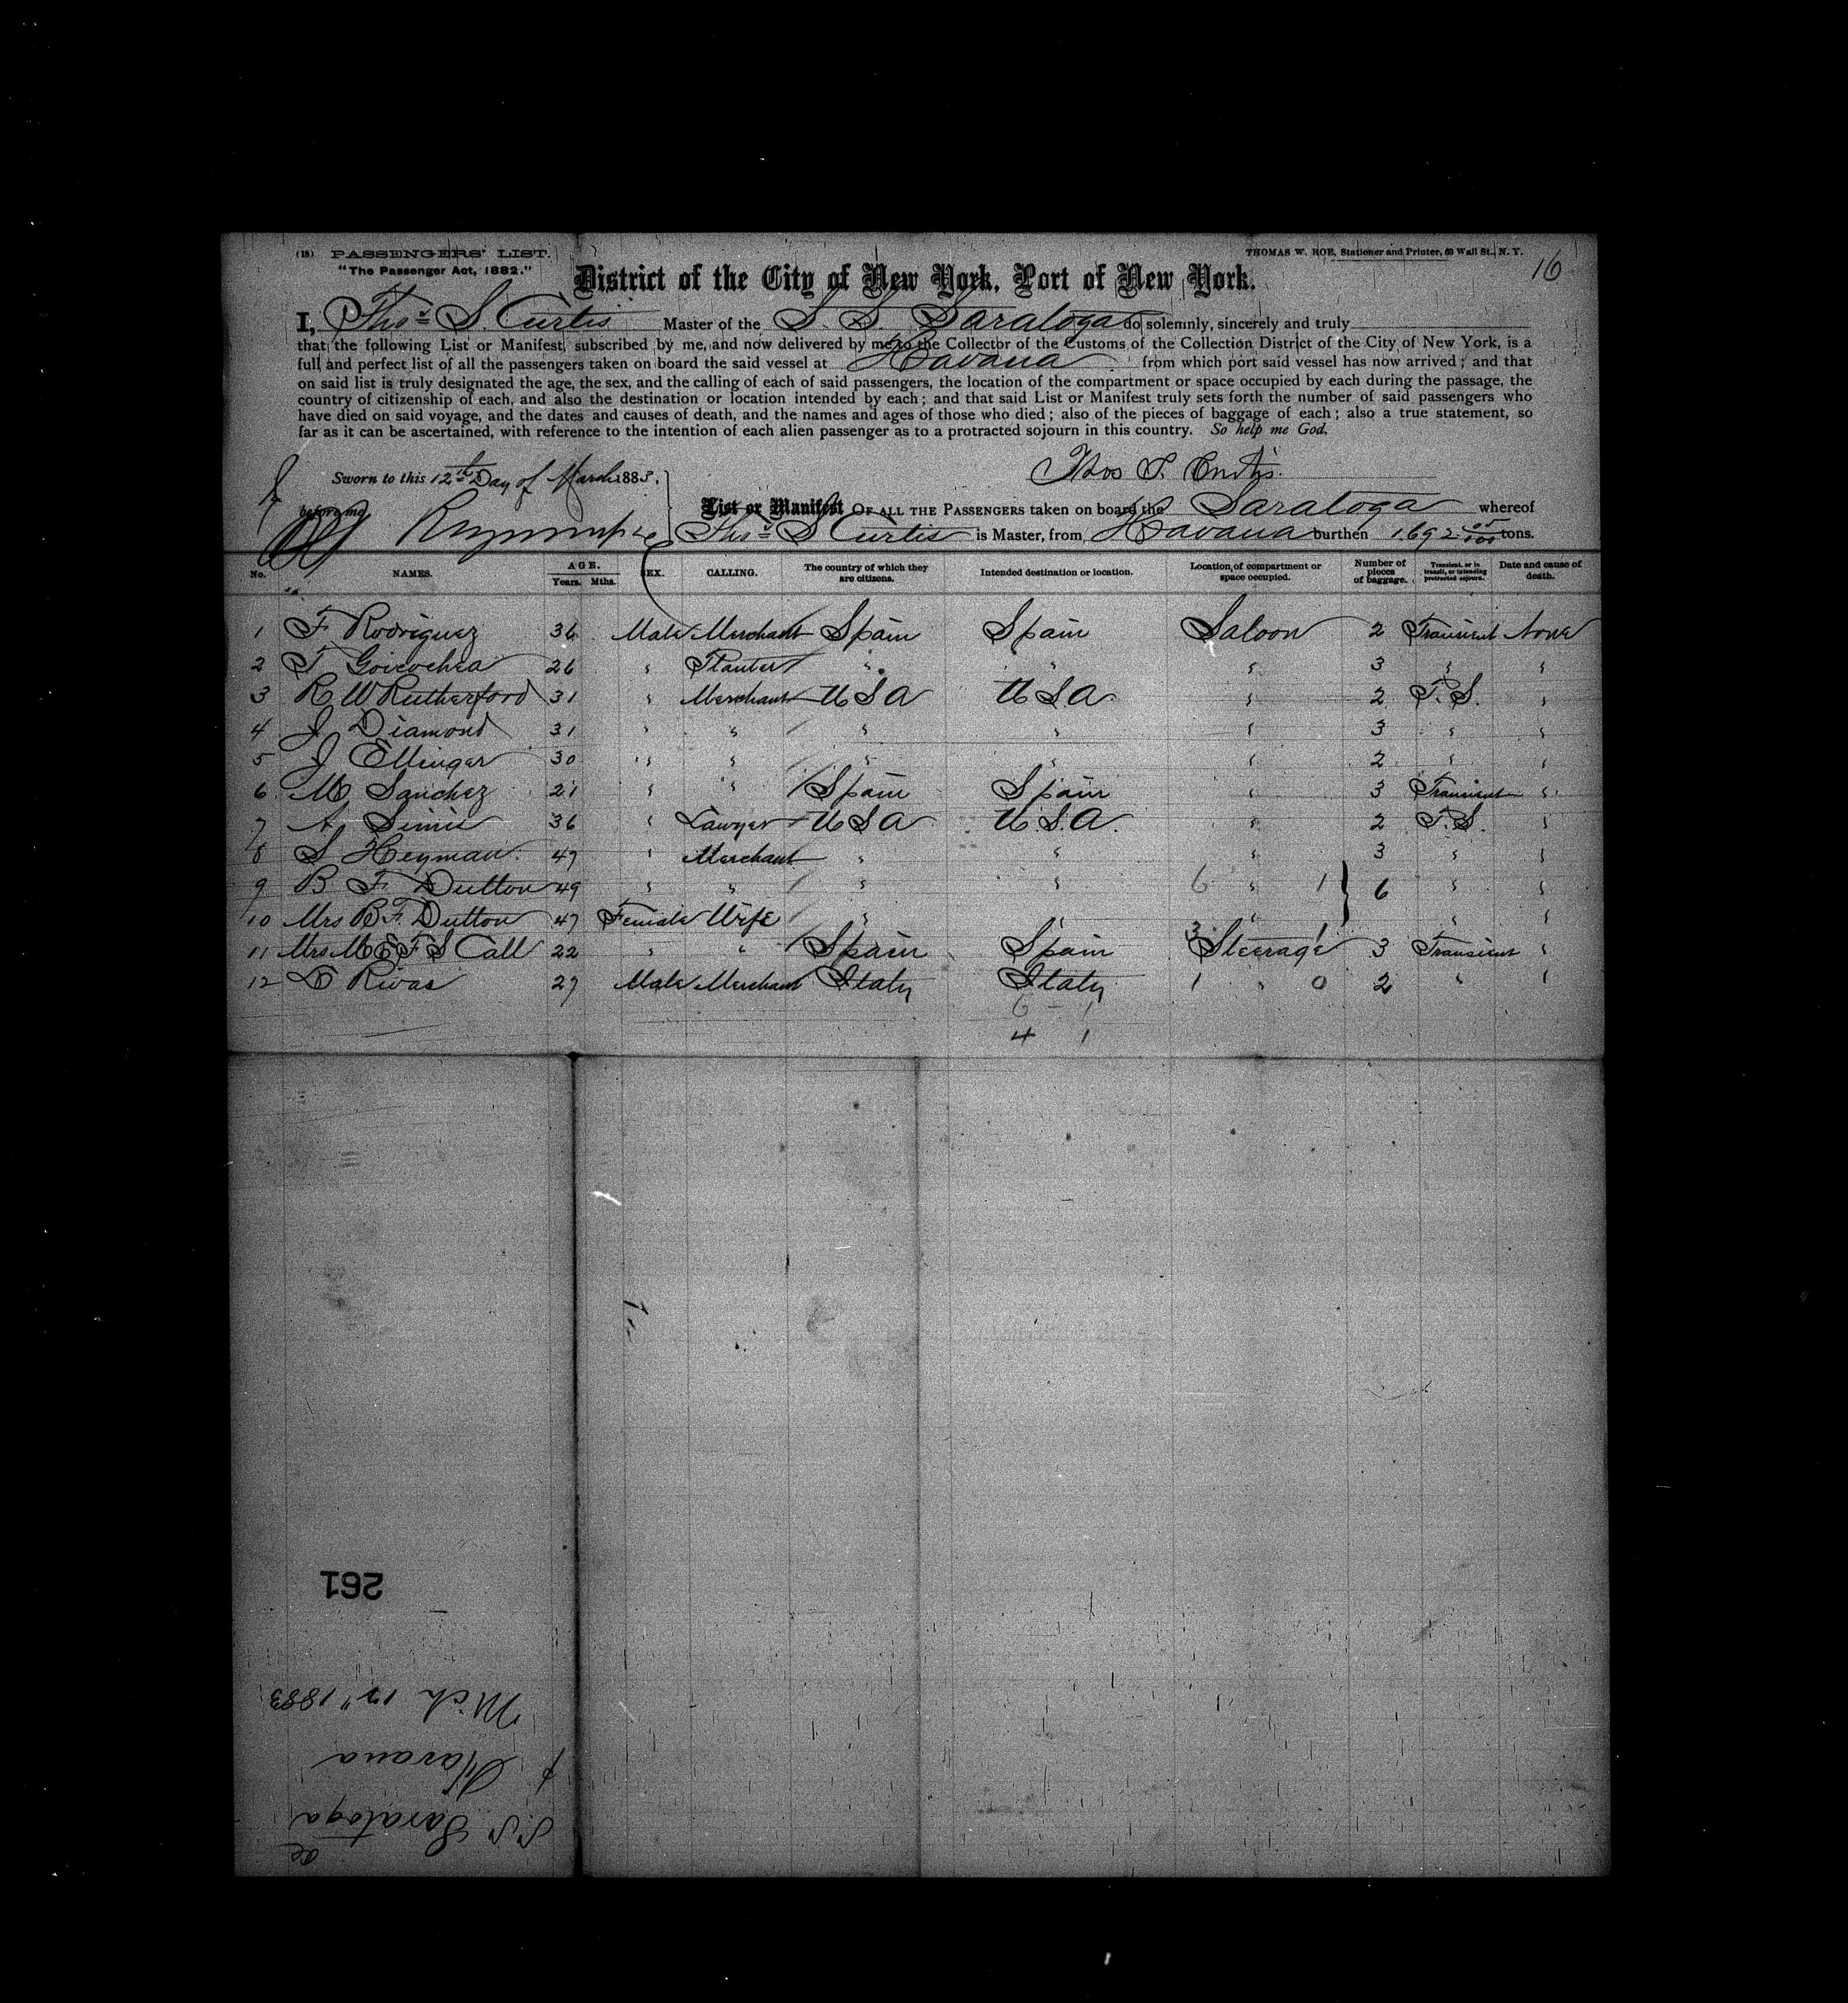 (18) PASSENGERS' LIST.
"The Passenger Act, 1882."
THOMAS W. ROE, Stationer and Printer, 63 Wall St., N. Y.
16
District of the City of New York, Port of New York.
I, Thos S. Curtis Master of the S. S. Saratoga do solemnly, sincerely and truly
that the following List or Manifest, subscribed by me, and now delivered by me to the Collector of the Customs of the Collection District of the City of New York, is a
full and perfect list of all the passengers taken on board the said vessel at Havana from which port said vessel has now arrived; and that
on said list is truly designated the age, the sex, and the calling of each of said passengers, the location of the compartment or space occupied by each during the passage, the
country of citizenship of each, and also the destination or location intended by each; and that said List or Manifest truly sets forth the number of said passengers who
have died on said voyage, and the dates and causes of death, and the names and ages of those who died; also of the pieces of baggage of each; also a true statement, so
far as it can be ascertained, with reference to the intention of each alien passenger as to a protracted sojourn in this country. So help me God.
Sworn to this 12th Day of March 1883,
Thos S. Curtis
before me
List or Manifest OF ALL THE PASSENGERS taken on board the Saratoga whereof
Thos S Curtis is Master, from Havana burthen 1692 tons.
No. NAMES. AGE. Years. Mths. SEX. CALLING. The country of which they are citizens. Intended destination or location. Location of compartment or space occupied. Number of pieces of baggage. Transient, or in transit, or intending protracted sojourn. Date and cause of death.
1 F Rodriguez 36 Male Merchant Spain Spain Saloon 2 Transient None
2 Goicochea 26 " Planter " " " 3 " "
3 R W Rutherford 31 " Merchant U S A U S A " 2 P. S. "
4 J Diamond 31 " " " " " 3 " "
5 J Ellinger 30 " " " " " 2 " "
6 M Sanchez 21 " " Spain Spain " 3 Transient "
7 A 36 " Lawyer U S A U. S. A. " 2 P. S. "
8 S Heyman 47 " Merchant " " " 3 " "
9 B F Dutton 49 " " " " 6 " 1 6 " "
10 Mrs B F Dutton 47 Female Wife " " " " "
11 Mrs M E F S Call 22 " " Spain Spain 3 Steerage 1 3 Transient "
12 Rivas 27 Male Merchant Italy Italy 1 " 0 2 " "
6 - 1
4 1
261
Mch 12" 1883
f Havana
S.S. Saratoga